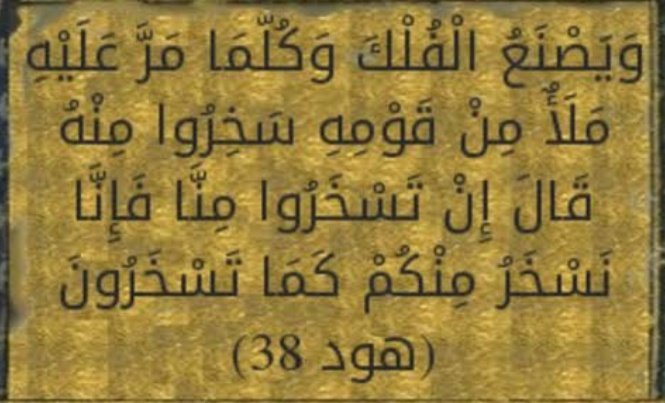 وَيَصْنَعُ الْفُلْكَ وَكُلَّمَا مَرَّ عَلَيْهِ
مَلَأٌ مِنْ قَوْمِهِ سَخِرُوا مِنْهُ
قَالَ إِنْ تَسْخَرُوا مِنَّا فَإِنَّا
نَسْخَرُ مِنْكُمْ كَمَا تَسْخَرُونَ
(هود 38)